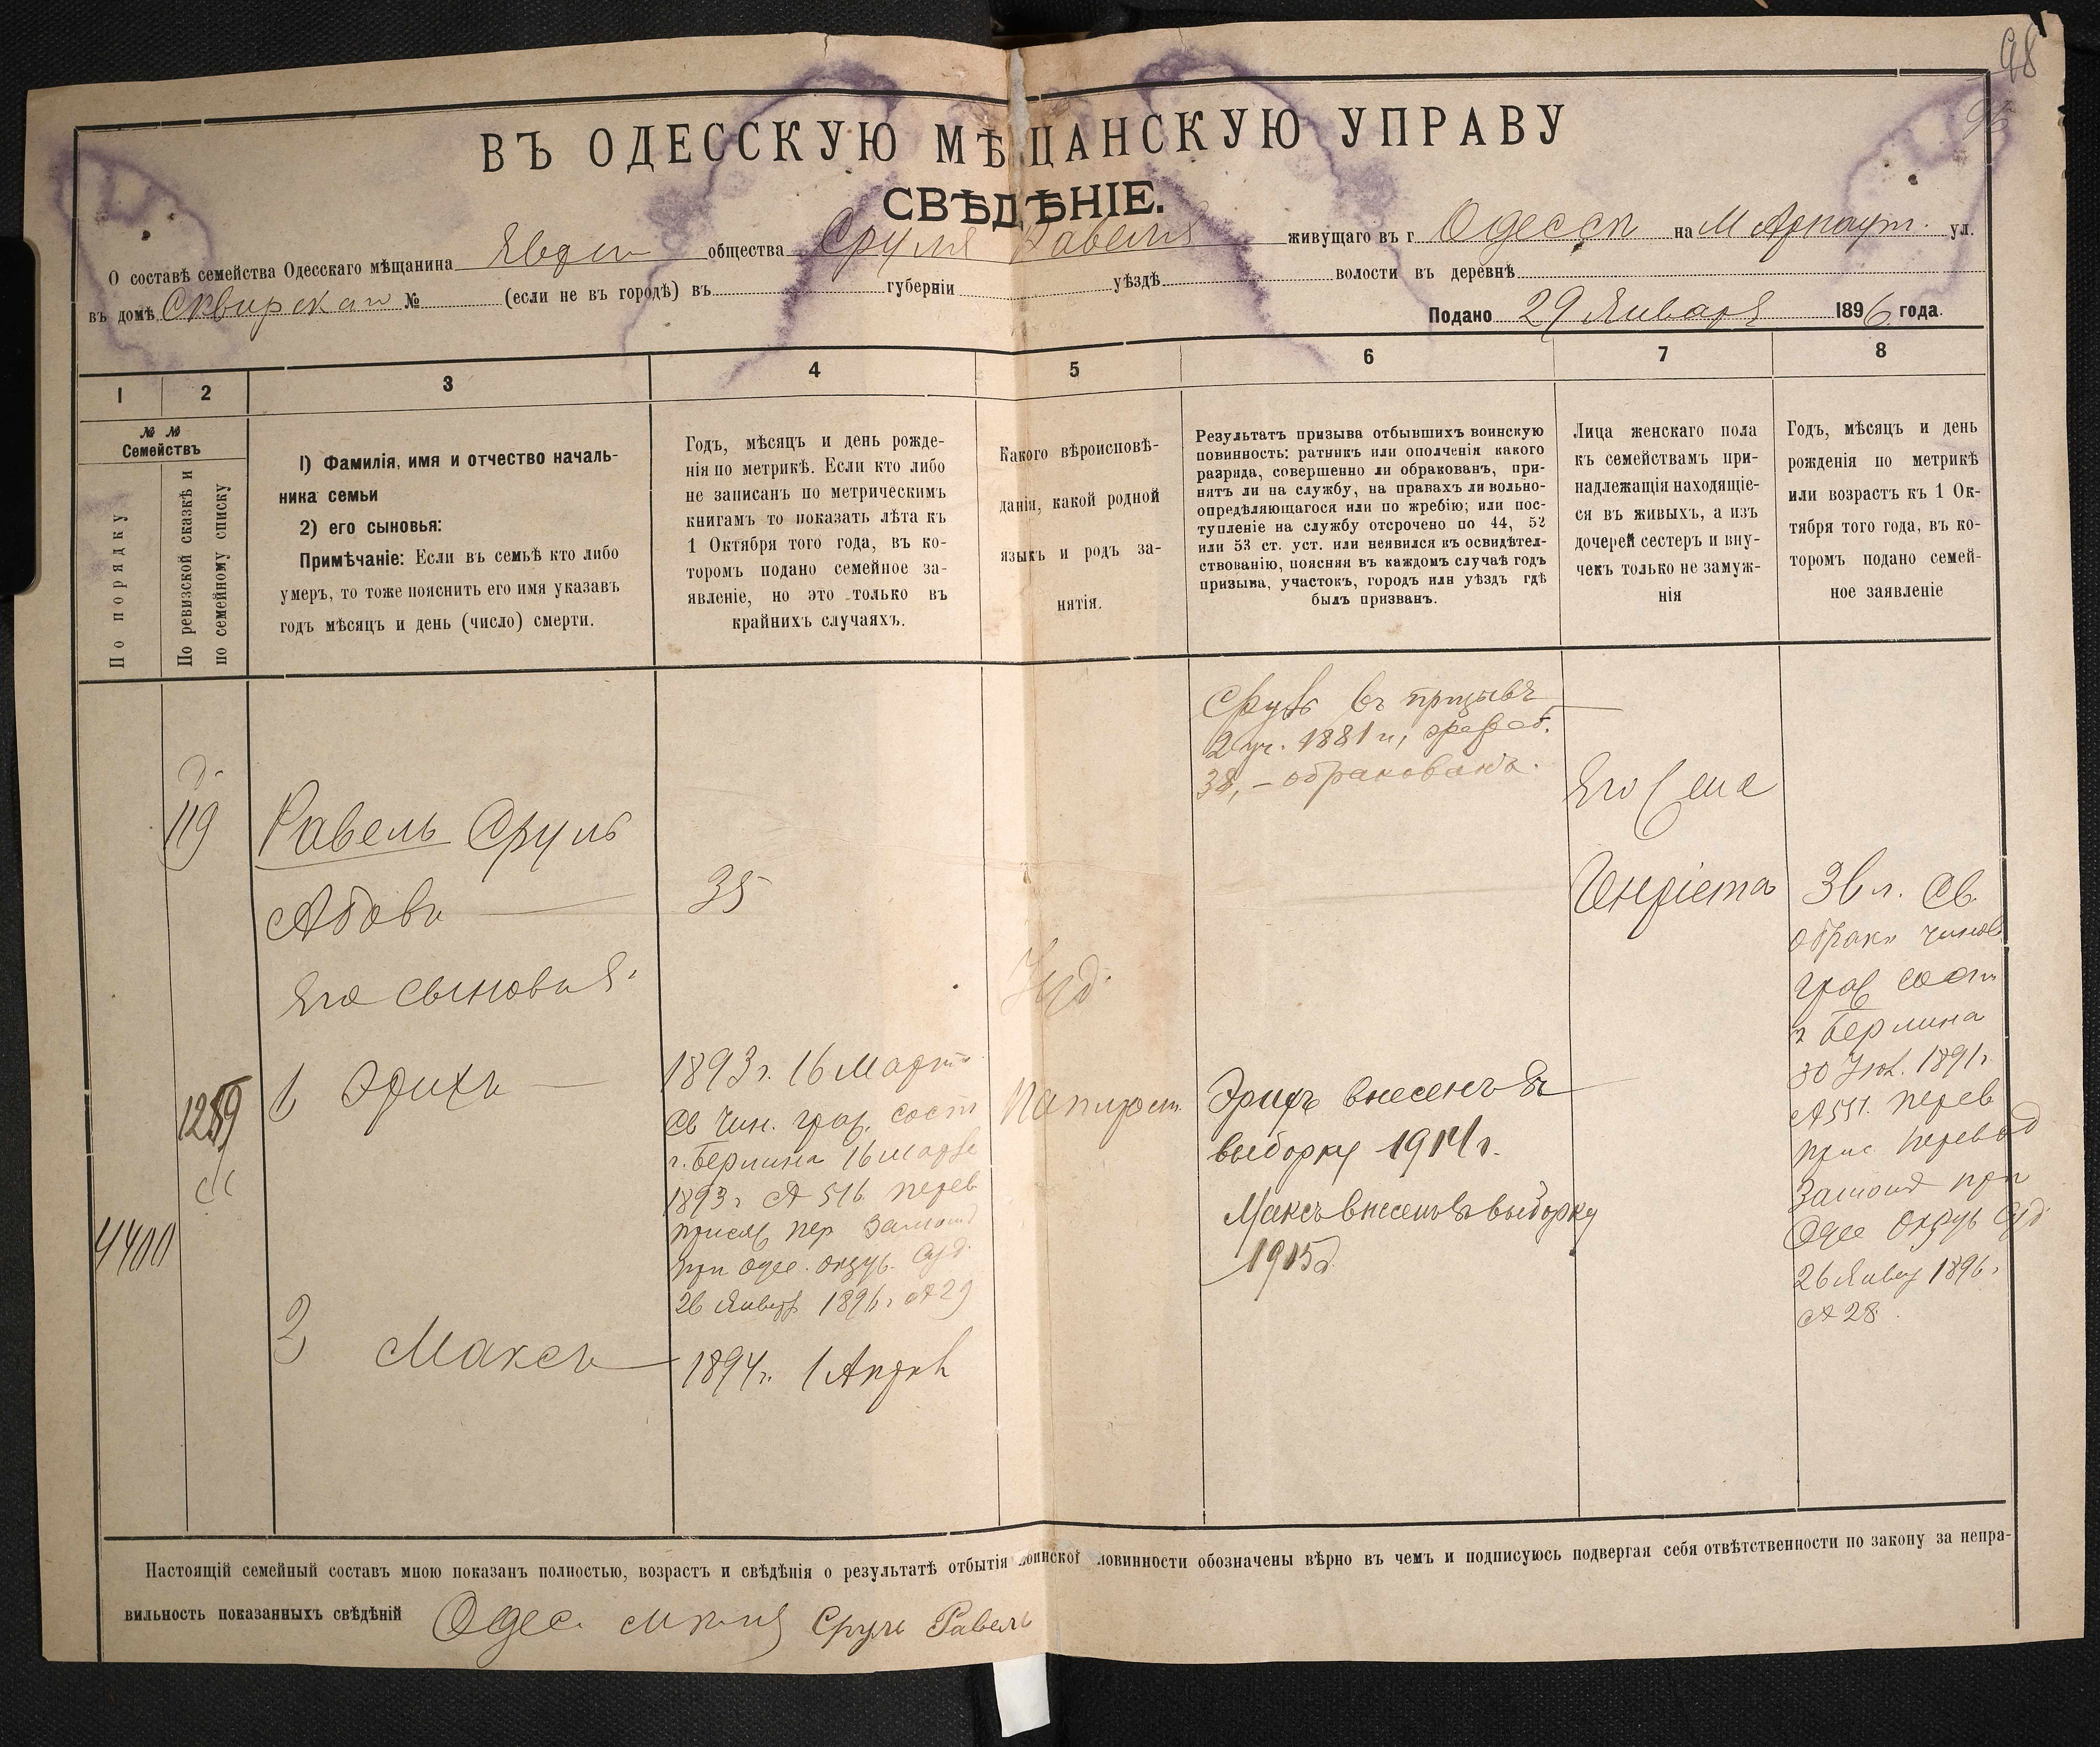 98
ВЪ ОДЕССКУЮ МѢЩАНСКУЮ УПРАВУ
СВѢДѢНІЕ.
О составѣ семейства Одесскаго мѣщанина общества Сруля Равеля живущаго въ г Одессѣ на М Арнаут. ул.
въ домѣ Сквирскаго № (если не въ городѣ) въ губерніи уѣздѣ волости въ деревнѣ
Подано 29 Января 1896 года.
1 2 3 4 5 6 7 8
№ №
Семействъ
По порядку
По ревизской сказкѣ и
по семейному списку
1) Фамилія, имя и отчество началь-
ника семьи
2) его сыновья:
Примѣчаніе: Если въ семьѣ кто либо
умеръ, то тоже пояснить его имя указавъ
годъ мѣсяцъ и день (число) смерти.
Годъ, мѣсяцъ и день рожде-
нія по метрикѣ. Если кто либо
не записанъ по метрическимъ
книгамъ то показать лѣта къ
1 Октября того года, въ ко-
торомъ подано семейное за-
явленіе, но это только въ
крайнихъ случаяхъ.
Какого вѣроисповѣ-
данія, какой родной
языкъ и родъ за-
нятія.
Результатъ призыва отбывшихъ воинскую
повинность: ратникъ или ополченія какого
разряда, совершенно ли обракованъ, при-
нятъ ли на службу, на правахъ ли вольно-
опредѣляющагося или по жребію; или пос-
тупленіе на службу отсрочено по 44, 52
или 53 ст. уст. или неявился къ освидѣтел-
ствованію, поясняя въ каждомъ случаѣ годъ
призыва, участокъ, городъ или уѣздъ гдѣ
былъ призванъ.
Лица женскаго пола
къ семействамъ при-
надлежащія находящіе-
ся въ живыхъ, а изъ
дочерей сестеръ и вну-
чекъ только не замуж-
нія
Годъ, мѣсяцъ и день
рожденія по метрикѣ
или возрастъ къ 1 Ок-
тября того года, въ ко-
торомъ подано семей-
ное заявленіе
119
1289
4400
Равель Сруль
Абовъ
Его сыновья:
1 Эрихъ
2 Максъ
35
1893 г. 16 Марта
Св Чин. граж. сост
г. Берлина 16 марта
1893 г № 516 перев
присяж пер
при Одес. окруж. суд.
26 Января 1896 г № 29
1894 г. 1 Апрѣл
Іуд.
Сруль въ призывѣ
2 уч. 1881 г, жреб.
38, – обракованъ.
Эрихъ внесенъ въ
выборку 1914 г.
Максъ внесенъ въ выборку
1915 г.
Его жена
Генріета
36 л. Св.
о бракѣ чинов
граж сост
г Берлина
30 1891 г.
№ 511. перев
прис перевод
при
Одес Окруж Суд
26 Январ 1896 г
№ 28.
Настоящій семейный составъ мною показанъ полностью, возрастъ и свѣдѣнія о результатѣ отбытія воинской повинности обозначены вѣрно въ чемъ и подписуюсь подвергая себя отвѣтственности по закону за непра-
вильность показанныхъ свѣдѣній Одес. Сруль Равель